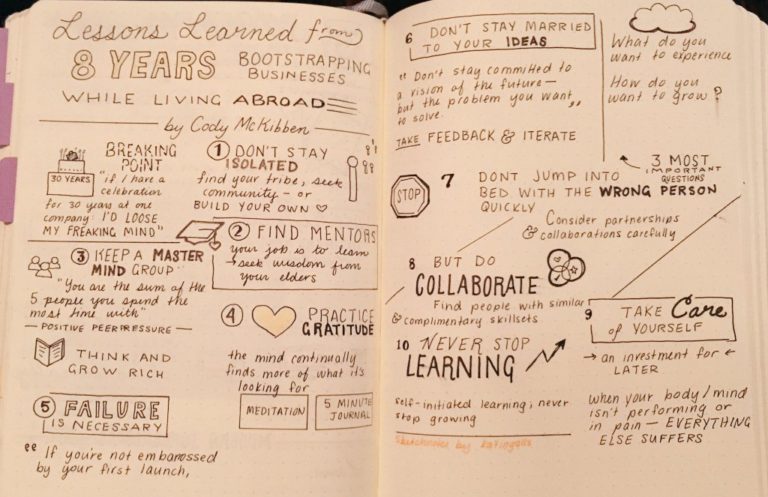 Lessons Learned from
8 YEARS BOOTSTRAPPING
BUSINESSES
WHILE LIVING ABROAD
by Cody McKibben
BREAKING
POINT
30 YEARS
"if I have a
celebration
for 30 years at one
company I'D LOSE
MY FREAKING MIND"
1 DON'T STAY
ISOLATED
find your tribe, seek
community - or
BUILD YOUR OWN ♡
2 FIND MENTORS
your job is to learn
→ seek wisdom from
your elders
3 KEEP A MASTER
MIND GROUP
"You are the sum of the
5 people you spend the
most time with"
— POSITIVE PEER PRESSURE —
THINK AND
GROW RICH
4 PRACTICE
GRATITUDE
the mind continually
finds more of what it's
looking for
MEDITATION
5 MINUTE
JOURNAL
5 FAILURE
IS NECESSARY
"If you're not embarossed
by your first launch,
6 DON'T STAY MARRIED
TO YOUR IDEAS
"Don't stay committed to
a vision of the future—
but the problem you want
to solve."
TAKE FEEDBACK & ITERATE
What do you
want to experience
How do you
want to grow?
3 MOST
IMPORTANT
QUESTIONS
STOP
7 DONT JUMP INTO
BED WITH THE WRONG PERSON
QUICKLY
Consider partnerships
& collaborations carefully
8 BUT DO
COLLABORATE
Find people with similar
& complimentary skillsets
9 TAKE Care
of YOURSELF
→ an investment for ←
LATER
when your body/mind
isn't performing or
in pain — EVERYTHING
ELSE SUFFERS
10 NEVER STOP
LEARNING
self-initiated learning; never
stop growing
sketchnote by